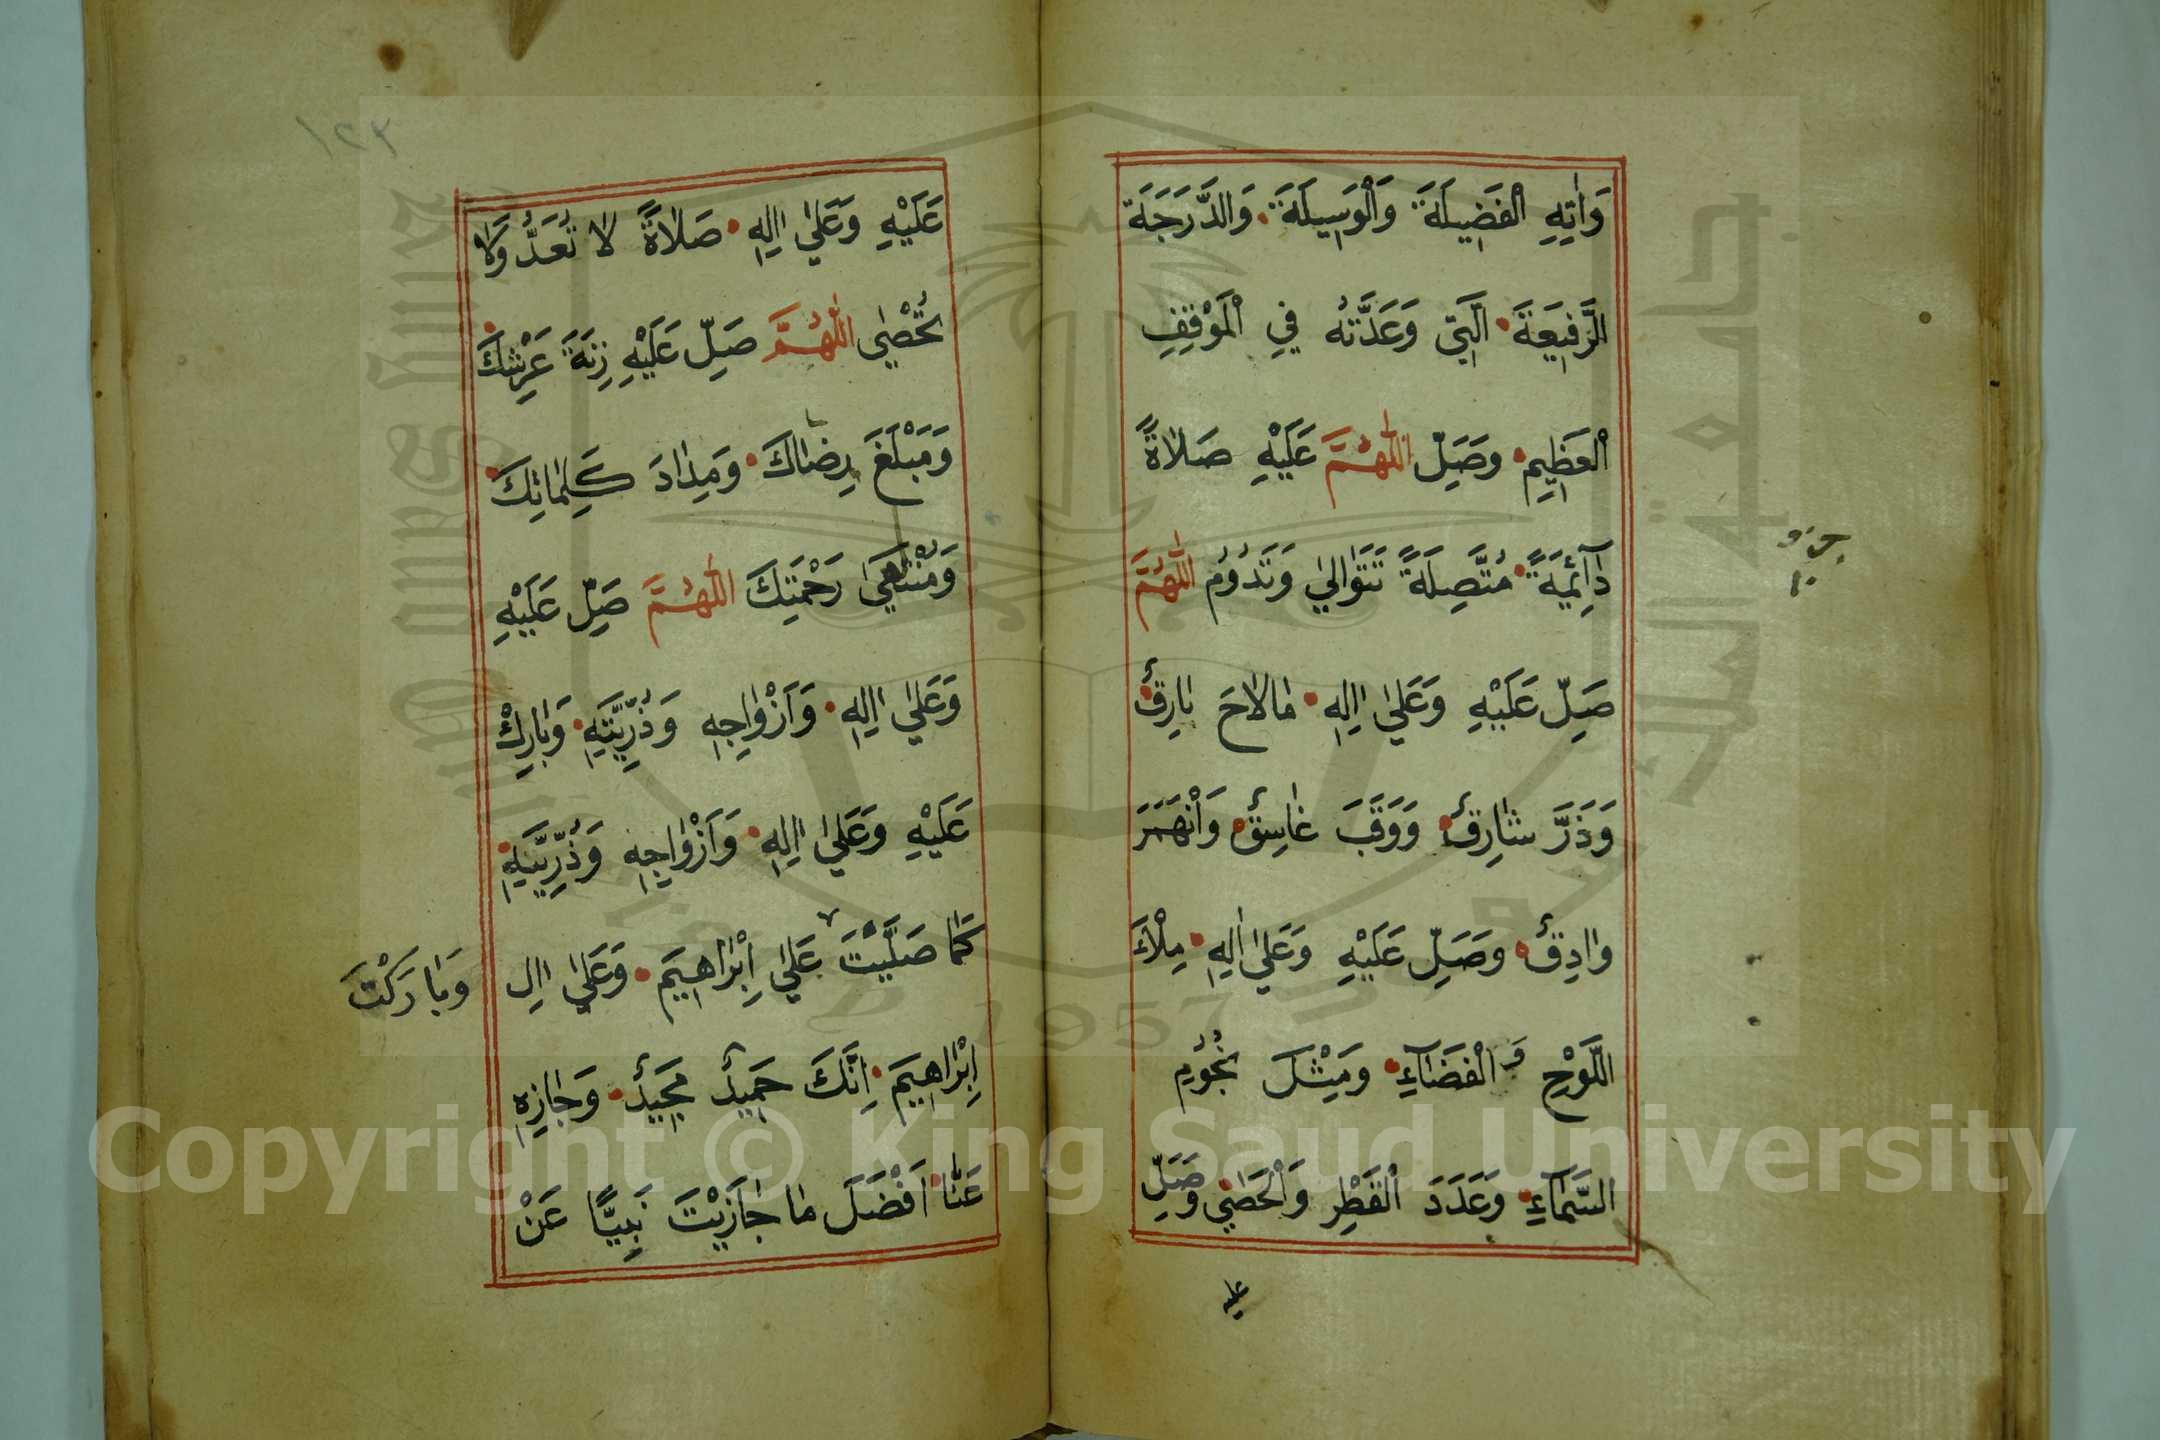 وَاٰتِهِ الْفَضِيلَةَ وَالْوَسِيلَةَ وَالدَّرَجَةَ
الرَّفِيعَةَ الَّتِي وَعَدْتَهُ فِي الْمَوْقِفِ
الْعَظِيمِ وَصَلِّ اللّٰهُمَّ عَلَيْهِ صَلَاةً
دَآئِمَةً مُتَّصِلَةً تَتَوَالٰي وَتَدُوُمُ اللّٰهُمَّ
صَلِّ عَلَيْهِ وَعَلٰي اٰلِهِ مٰالَاحَ بٰارِقٌ
وَذَرَّ شٰارِقٌ وَوَقَبَ غٰاسِقٌ وَانْهَمَرَ
وٰادِقٌ وَصَلِّ عَلَيْهِ وَعَلٰي اٰلِهِ مِلْاَ
اللَّوْحِ وَ الْفَضَآءِ وَمِثْلَ نُجُوُمِ
السَّمَآءِ وَعَدَدَ الْقَطْرِ وَالْحَصٰي وَصَلِّ
عليه
عَلَيْهِ وَعَلٰي اٰلِهِ صَلَاةً لَا تُعَدُّ وَلَا
تُحْصٰي اللّٰهُمَّ صَلِّ عَلَيْهِ زِنَةَ عَرْشِكَ
وَمَبْلَغَ رِضٰاكَ وَمِدٰادَ كَلِمٰاتِكَ
وَمُنْتَهٰي رَحْمَتِكَ اللّٰهُمَّ صَلِّ عَلَيْهِ
وَعَلٰي اٰلِهِ وَاَزْوٰاجِهِ وَذُرِّيَّتِهِ وَبٰارِكْ
عَلَيْهِ وَعَلٰي اٰلِهِ وَاَزْوٰاجِهِ وَذُرِّيَّتِهِ
كَمٰا صَلَّيْتَ عَلٰي اِبْرٰاهِيمَ وَعَلٰي اٰلِ
وَبَارَكْتَ
اِبْرٰاهِيمَ اِنَّكَ حَمِيدٌ مَجِيدٌ وَجٰازِهِ
عَنّٰا اَفْضَلَ مٰا جٰازَيْتَ نَبِيًّا عَنْ
١٢٣
Copyright © King Saud University
1957